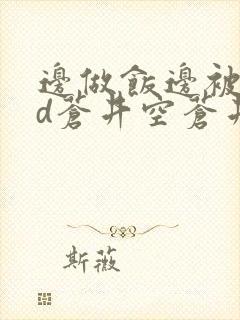 邊做飯邊被
d蒼井空蒼井
斯薇